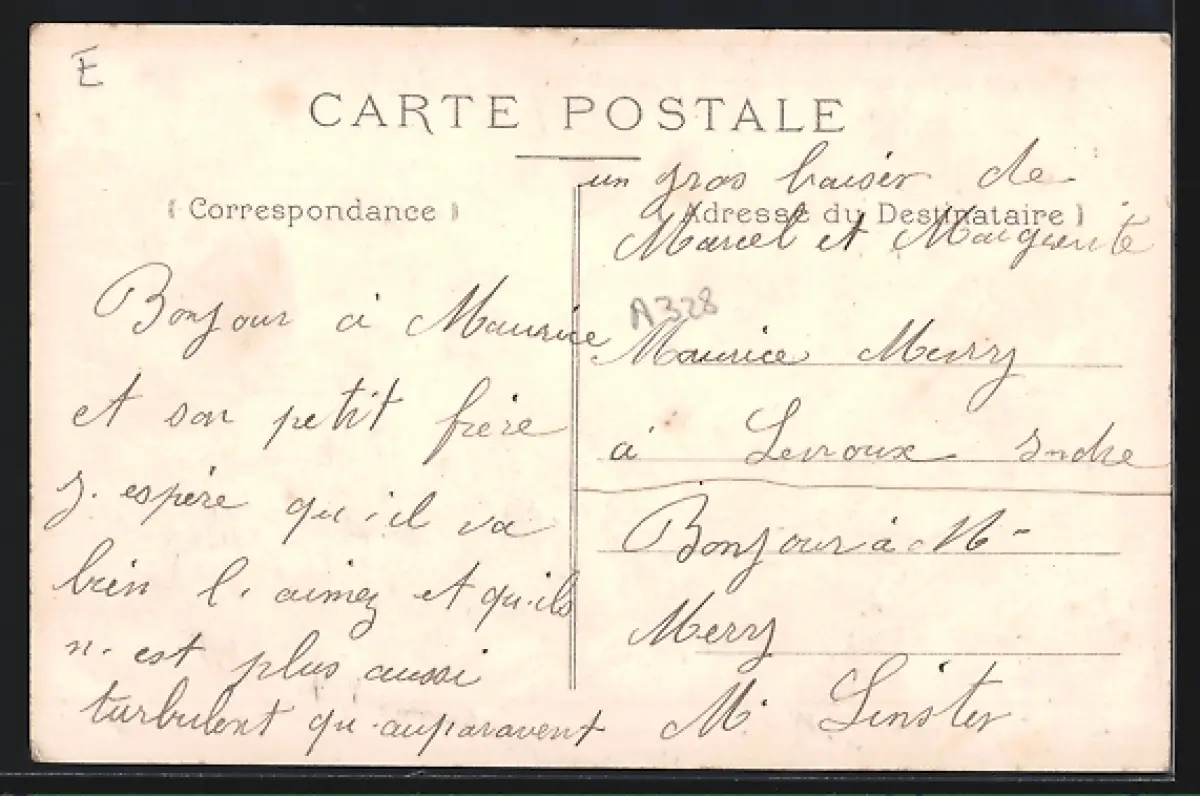 E
CARTE POSTALE
Correspondance
Bonjour à Maurice
et son petit frère
J. espère qu'il va
bien l. aimez et qu'ils
n. est plus aussi
turbulent qu-auparavent
un gros baiser de
Adresse du Destinataire
Marcel et Marguerite
A328
Maurice Merry
à Levroux Indre
Bonjour à M-
Merry
M. Linster